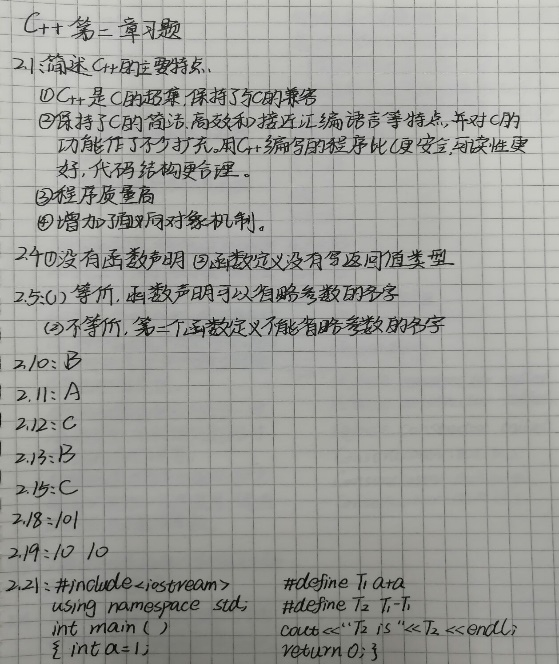 C++ 第二章习题
2.1:简述C++的主要特点.
①C++是C的超集,保持了与C的兼容
②保持了C的简洁、高效和接近汇编语言等特点,并对C的
功能作了不少扩充。用C++编写的程序比C更安全,可读性更
好,代码结构更合理。
③程序质量高
④增加了面向对象机制。
2.4①没有函数声明 ②函数定义没有写返回值类型
2.5:(1) 等价,函数声明可以省略参数的名字
(2)不等价,第二个函数定义不能省略参数的名字
2.10: B
2.11: A
2.12: C
2.13: B
2.15: C
2.18: 101
2.19: 10 10
2.21: #include<iostream> #define T1 a+a
using namespace std; #define T2 T1-T1
int main ( ) cout<<"T2 is "<<T2 <<endl;
{ int a=1; return 0; }